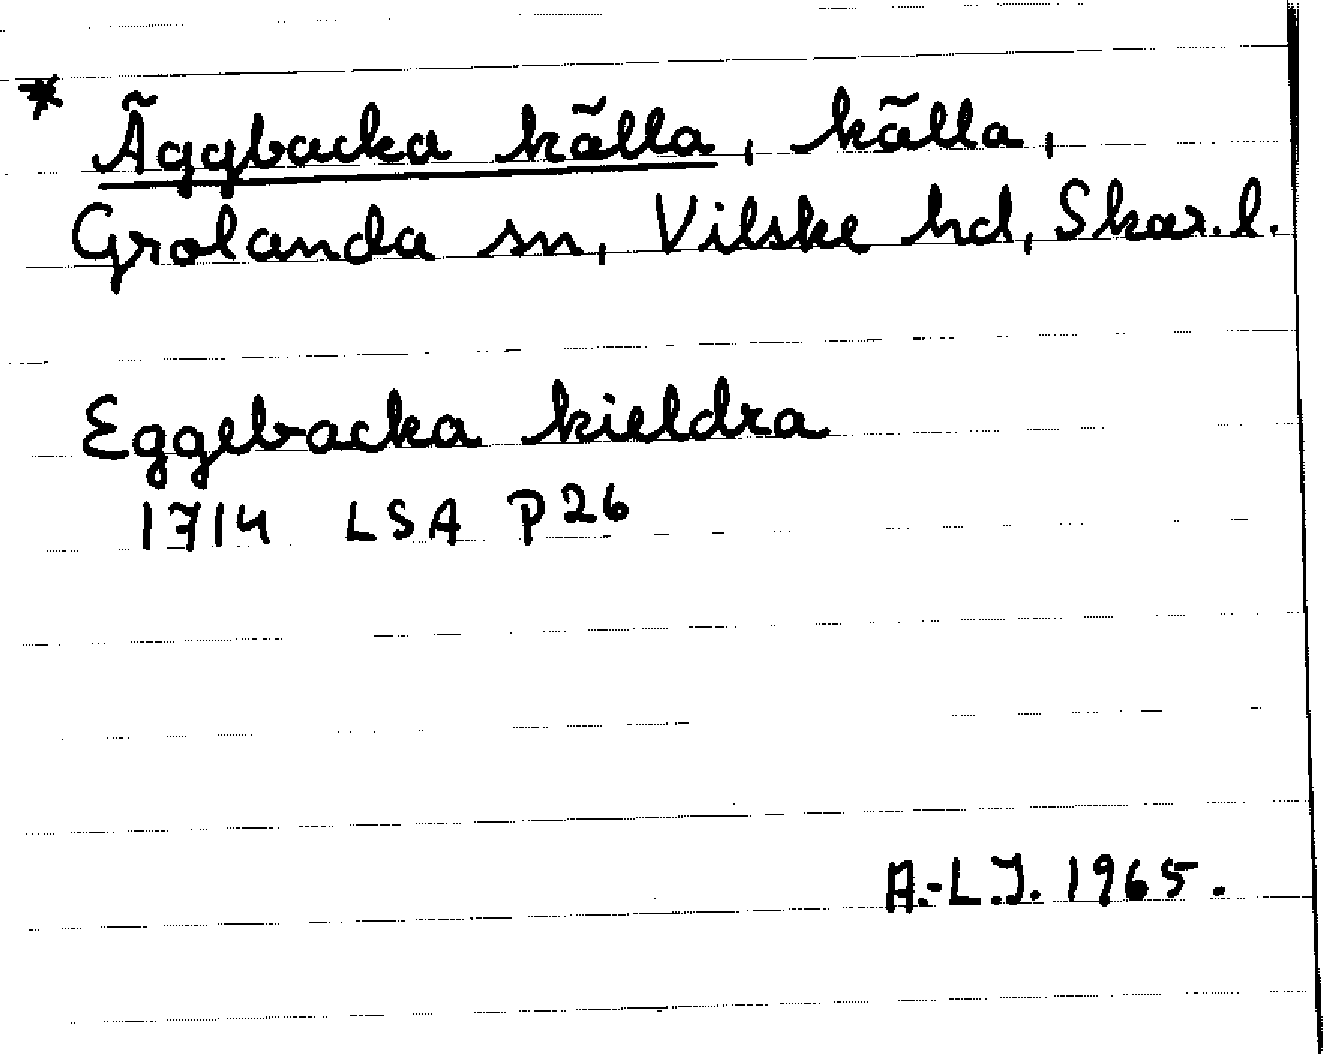 * Äggbacka källa, källa,
Grolanda sn, Vilske hd, Skar.l.
Eggebacka kieldra
1714 LSA P26
A.-L.J. 1965.